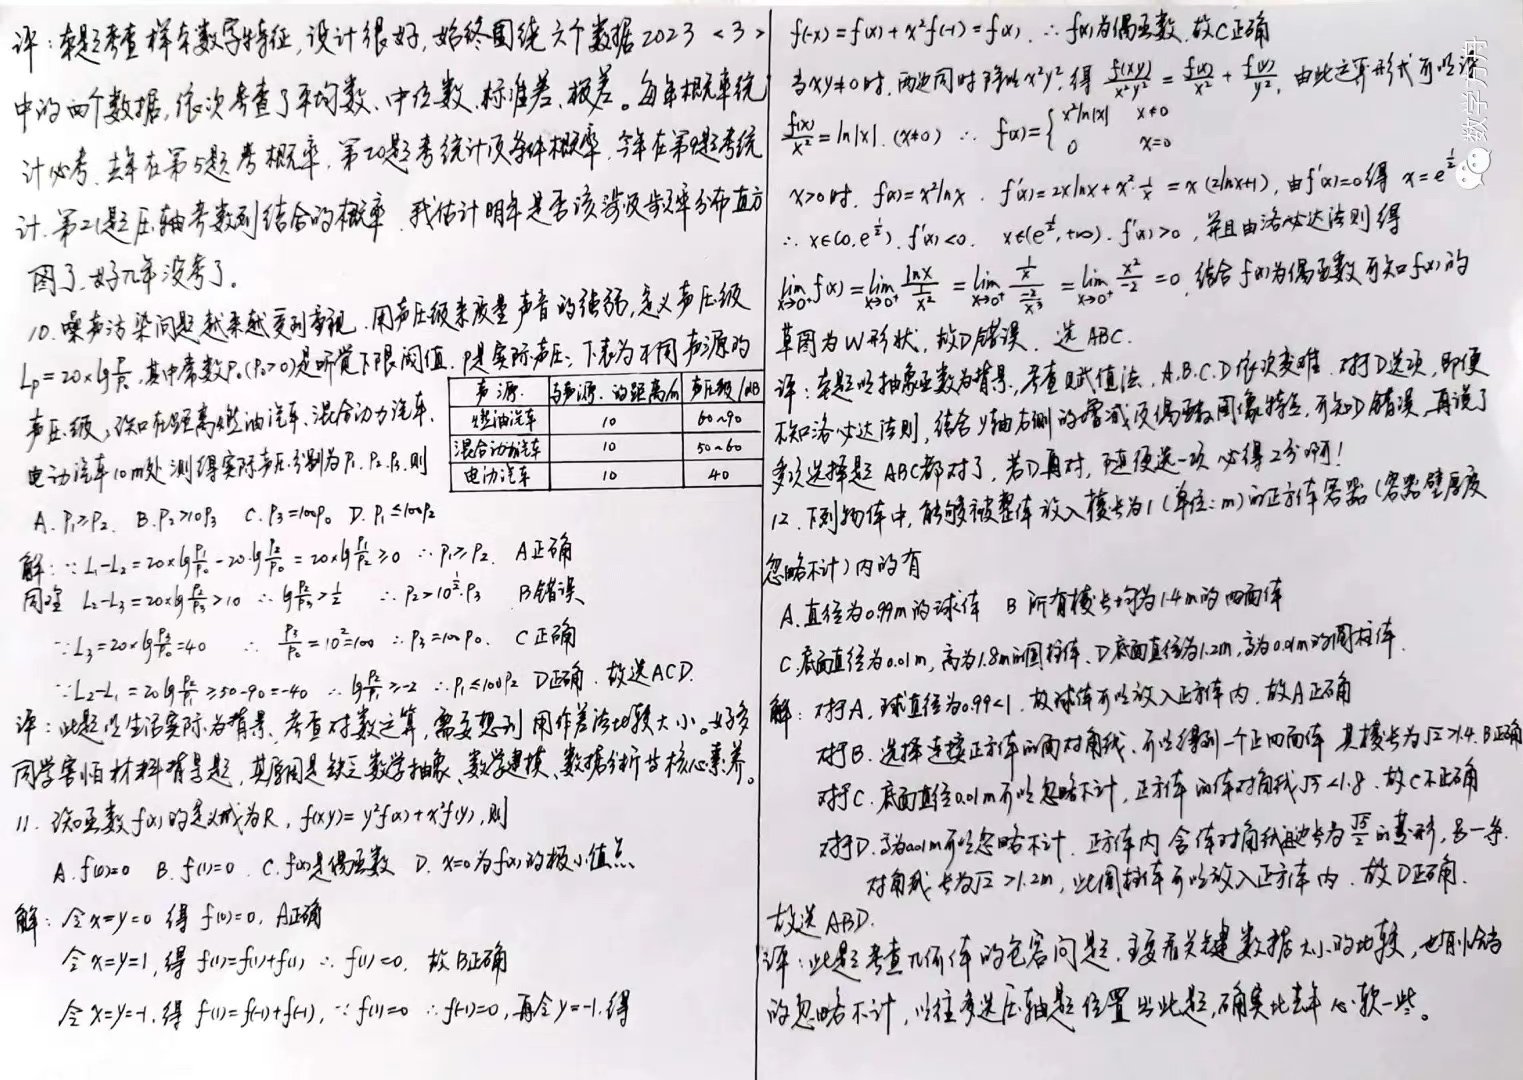 评：本题考查样本数字特征,设计很好,始终围绕六个数据2023<3>
中的两个数据,依次考查了平均数、中位数、标准差、极差。每年概率统
计必考,去年在第5题考概率,第20题考统计及条件概率,今年在第9题考统
计.第21题压轴考数列结合的概率.我估计明年是否该涉及步频率分布直方
图了,好几年没考了。
10.噪声污染问题越来越受到重视.用声压级来度量声音的强弱,定义声压级
Lp=20×lg P/P₀,其中常数P₀(P₀>0)是听觉下限阈值.P是实际声压;下表为不同声源的
声压级,已知在距离燃油汽车、混合动力汽车、
电动汽车10m处测得实际声压分别为P₁.P₂.P₃.则
声源 与声源的距离/m 声压级/dB
燃油汽车 10 60~90
混合动力汽车 10 50~60
电动汽车 10 40
A.P₁≥P₂. B.P₂>10P₃ C.P₃=100P₀ D.P₁≤100P₂
解:∵L₁-L₂=20×lg P₁/P₀-20·lg P₂/P₀=20×lg P₁/P₂≥0 ∴P₁≥P₂. A正确
同理 L₂-L₃=20×lg P₂/P₃>10 ∴lg P₂/P₃>1/2 ∴P₂>10^(1/2)·P₃ B错误
∵L₃=20×lg P₃/P₀=40 ∴ P₃/P₀=10²=100 ∴P₃=100P₀. C正确
∵L₂-L₁=20lg P₂/P₁≥50-90=-40 ∴lg P₂/P₁≥-2 ∴P₁≤100P₂ D正确.故选ACD.
评:此题以生活实际为背景,考查对数运算,需要想到用作差法比较大小。好多
同学害怕材料背景题,其原因是缺乏数学抽象、数学建模、数据分析等核心素养。
11.已知函数f(x)的定义域为R,f(xy)=y²f(x)+x²f(y),则
A.f(0)=0 B.f(1)=0.C.f(x)是偶函数 D.x=0为f(x)的极小值点
解:令x=y=0得f(0)=0,A正确
令x=y=1,得f(1)=f(1)+f(1) ∴f(1)=0. 故B正确
令x=y=-1.得f(1)=f(-1)+f(-1),∵f(1)=0 ∴f(-1)=0,再令y=-1.得
f(-x)=f(x)+x²f(-1)=f(x).∴f(x)为偶函数.故C正确
当xy≠0时.两边同时除以x²y²,得 f(xy)/x²y²=f(x)/x²+f(y)/y²,由此运算形式可以设
f(x)/x²=ln|x|.(x≠0) ∴ f(x)={x²ln|x| x≠0
0 x=0
x>0时.f(x)=x²lnx.f′(x)=2xlnx+x²·1/x=x(2lnx+1),由f′(x)=0得 x=e^(-1/2)
∴x∈(0,e^(-1/2)).f′(x)<0. x∈(e^(-1/2),+∞).f′(x)>0,并且由洛必达法则得
lim x→0⁺ f(x)=lim x→0⁺ lnx/(1/x²)=lim x→0⁺ (1/x)/(-2/x³)=lim x→0⁺ x²/-2=0,结合f(x)为偶函数可知f(x)的
草图为W形状,故D错误. 选ABC.
评:本题以抽象函数为背景,考查赋值法,A.B.C.D依次变难.对于D选项,即便
不知洛必达法则,结合y轴右侧的增减及偶函数图像特征,可知D错误,再说了
多项选择题ABC都对了,若D再对,随便选一项必得2分啊!
12.下列物体中,能够被整体放入棱长为1(单位:m)的正方体容器(容器壁厚度
忽略不计)内的有
A.直径为0.99m的球体 B所有棱长均为1.4m的四面体
C.底面直径为0.01m,高为1.8m的圆柱体、D底面直径为1.2m,高为0.01m的圆柱体.
解:对于A.球直径为0.99<1.故球体可以放入正方体内.故A正确
对于B.选择连接正方体的面对角线,可以得到一个正四面体 其棱长为√2>1.4.B正确
对于C.底面直径0.01m可以忽略不计,正方体的体对角线√3<1.8.故C不正确
对于D.高为0.01m可以忽略不计.正方体内含体对角线且边长为√5/2的菱形,另一条
对角线长为√2>1.2m,此圆柱体可以放入正方体内.故D正确.
故选ABD.
评:此题考查几何体的包容问题.主要看关键数据大小的比较,也有恰当
的忽略不计,以往多选压轴题位置出此题,确实比去年心软一些。